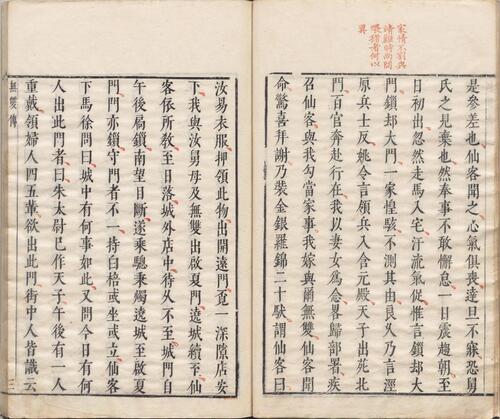 是參差也仙客聞之心氣俱喪達旦不寐恐舅
氏之見棄也然奉事不敢懈怠一日震趨朝至
日初出忽然走馬入宅汗流氣促惟言鎖却大
門鎖却大門一家惶駭不測其由良久乃言涇
原兵士反姚令言領兵入含元殿天子出苑北
門百官奔赴行在我以妻女為念畧歸部署疾
召仙客與我勾當家事我嫁與爾無雙仙客聞
命驚喜拜謝乃裝金銀羅錦二十馱謂仙客曰
汝易衣服押領此物出開遠門覓一深隙店安
下我與汝舅母及無雙出啟夏門遶城續至仙
客依所教至日落城外店中待久不至城門自
午後扃鎖南望目斷遂乘驄秉燭遶城至啟夏
門門亦鎖守門者不一持白棓或坐或立仙客
下馬徐問曰城中有何事如此又問今日有何
人出此門者曰朱太尉已作天子午後有一人
重戴領婦人四五輩欲出此門街中人皆識云
無雙傳
三